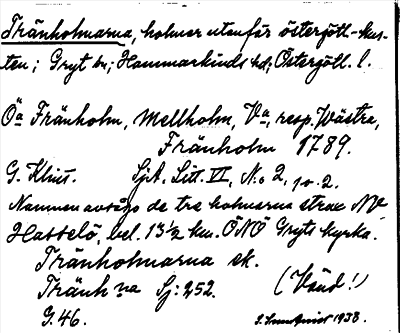 Fränholmarna, holmar utanför östergötl.-kus-
ten; Gryt sn; Hammarkinds hd; Östergötl. l.
Öa Fränholm, Mellholm, Va, resp. Wästra,
Fränholm 1789.
G. Klint. SjA, Litt. VI, No 2, 1 o. 2.
Namnen avsågo de tre holmarna strax NV
Hasselö, bel. 13½ km. ÖNÖ Gryts kyrka.
Fränholmarna sk.
Fränh na Sj: 252. (Vänd!)
G. 46. 1938.